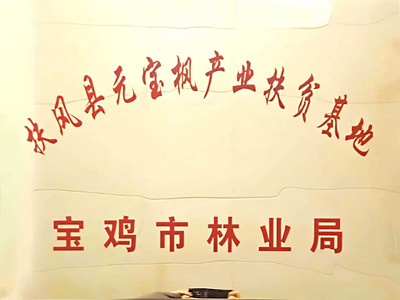 扶风县元宝枫产业扶贫基地
宝鸡市林业局